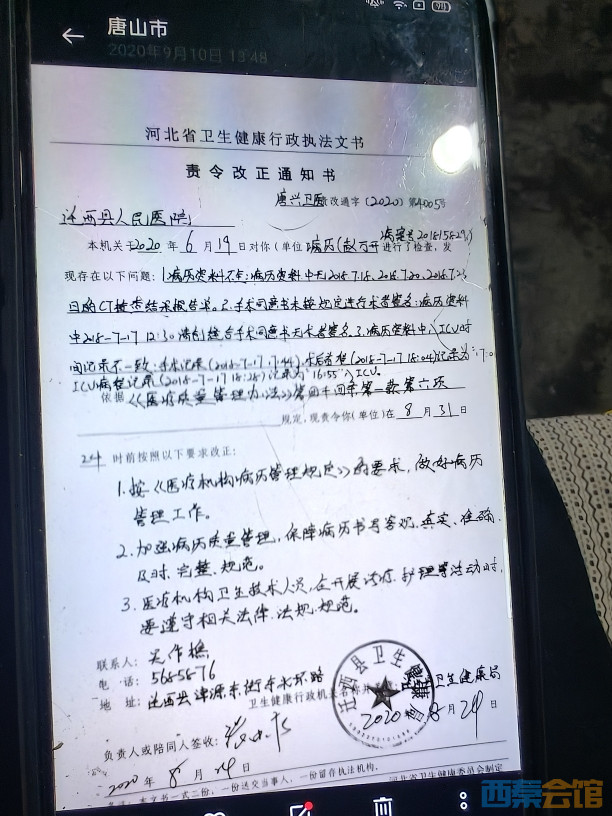 唐山市
2020年9月10日 13:48
河北省卫生健康行政执法文书
责令改正通知书
改通字（2020）第4005号
迁西县人民医院
病案号2018158291）
本机关于2020年6月19日对你（单位）病历（赵万开进行了检查，发
现存在以下问题：1.病历资料不全：病历资料中无2018.7.18、2018.7.20、2018.7.23
日的CT检查结果报告书。2.手术同意书未按规定进行术者签名：病历资料
中2018-7-17 12:30 清创缝合手术同意书无术者签名。3.病历资料中入ICU时
间记录不一致：手术记录（2018-7-17 17:44）、术后首程（2018-7-17 18:04）记录为"17:0
ICU病程记录（2018-7-17 18:28）记录为"16:55"入ICU。
依据《医疗质量管理办法》第四十四条第一款第六项
规定，现责令你（单位）在8月31日
24时前按照以下要求改正：
1.按《医疗机构病历管理规定》的要求，做好病历
管理工作。
2.加强病历质量管理，保障病历书写客观、真实、准确、
及时、完整、规范。
3.医疗机构卫生技术人员，在开展诊疗、护理等活动时，
要遵守相关法律、法规、规范。
联系人：
电 话：5685876
地 址：迁西县津源东街东环路
卫生健康行政机关名称并
迁西县卫生健康局
卫生健康局
2020年8月24日
负责人或陪同人签收：
2020年8月24日
备注：本文书一式二份，一份送交当事人，一份留存执法机构。
河北省卫生健康委员会制定
西秦会馆